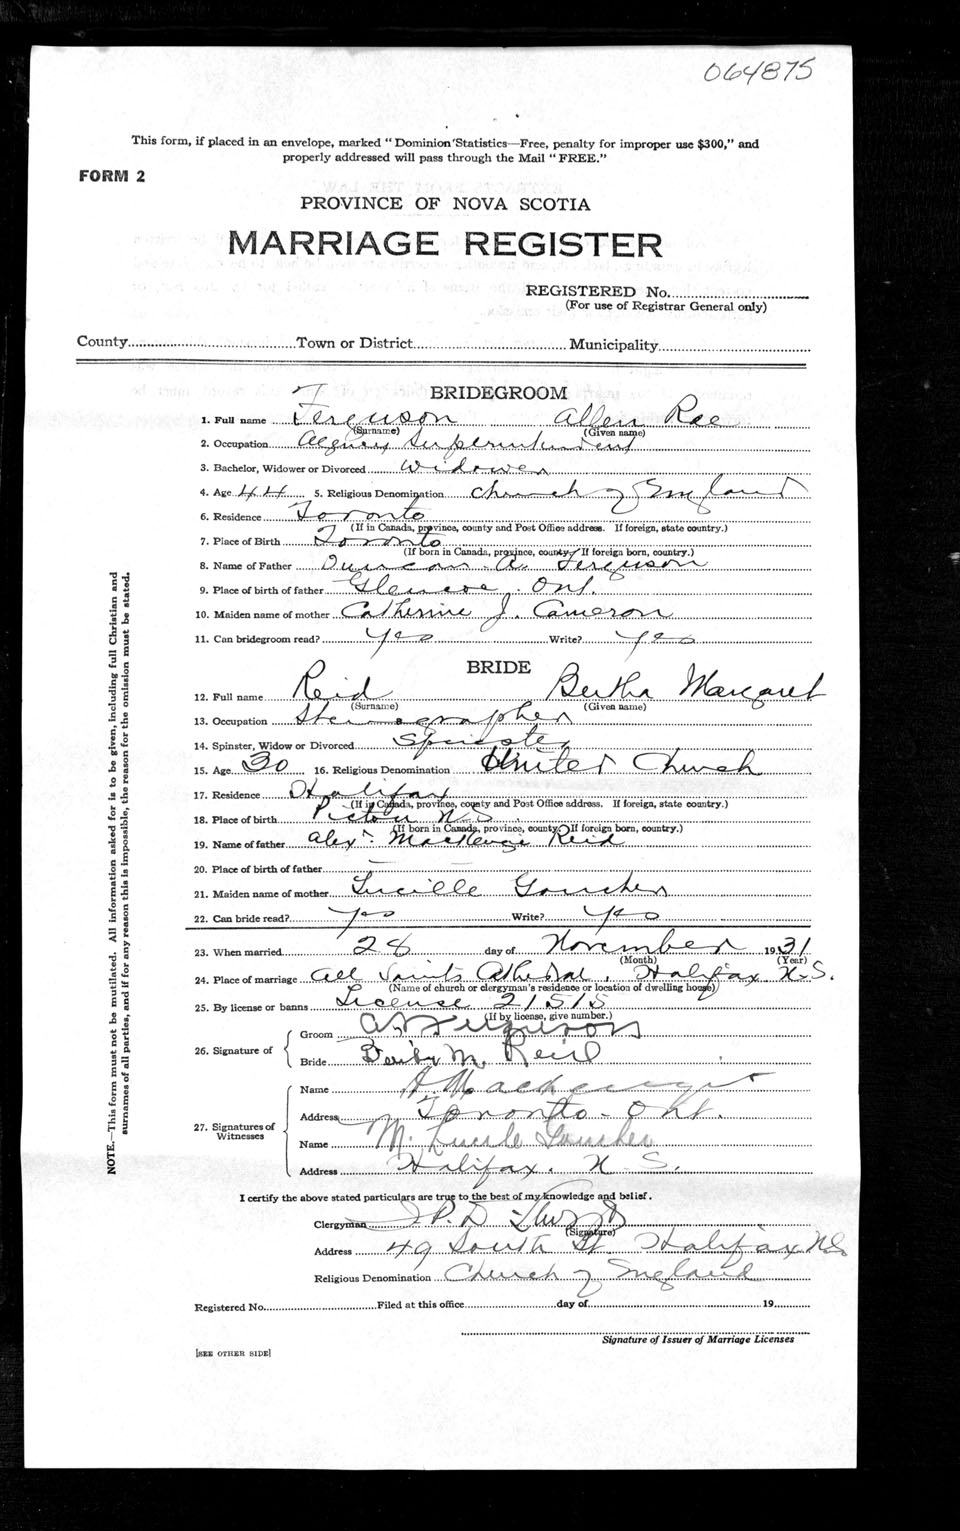 064875
This form, if placed in an envelope, marked "Dominion Statistics—Free, penalty for improper use $300," and
properly addressed will pass through the Mail "FREE."
FORM 2
PROVINCE OF NOVA SCOTIA
MARRIAGE REGISTER
REGISTERED No.
(For use of Registrar General only)
County Town or District Municipality
BRIDEGROOM
1. Full name Ferguson Allen Rae
(Surname) (Given name)
2. Occupation Agency Superintendent
3. Bachelor, Widower or Divorced Widower
4. Age 44 5. Religious Denomination Church of England
6. Residence Toronto
(If in Canada, province, county and Post Office address. If foreign, state country.)
7. Place of Birth Toronto
(If born in Canada, province, county. If foreign born, country.)
8. Name of Father Duncan A. Ferguson
9. Place of birth of father Glencoe. Ont.
10. Maiden name of mother Catherine J. Cameron
11. Can bridegroom read? yes Write? yes
BRIDE
12. Full name Reid Bertha Margaret
(Surname) (Given name)
13. Occupation Stenographer
14. Spinster, Widow or Divorced Spinster
15. Age 30 16. Religious Denomination United Church
17. Residence Halifax
(If in Canada, province, county and Post Office address. If foreign, state country.)
18. Place of birth Pictou N.S.
(If born in Canada, province, county. If foreign born, country.)
19. Name of father Alexr. MacKenzie Reid
20. Place of birth of father —
21. Maiden name of mother Lucille Goucher
22. Can bride read? yes Write? yes
23. When married 28 day of November 1931
(Month) (Year)
24. Place of marriage All Saints Cathedral, Halifax N.S.
(Name of church or clergyman's residence or location of dwelling house)
25. By license or banns License 21515
(If by license, give number.)
26. Signature of Groom A Ferguson
Bride M. Reid
27. Signatures of Witnesses
Name Mackenzie
Address Toronto - Ont.
Name M. Lucile Goucher
Address Halifax. N.S.
I certify the above stated particulars are true to the best of my knowledge and belief.
Clergyman
(Signature)
Address 49 South St Halifax N.S.
Religious Denomination Church of England
Registered No. Filed at this office day of 19
Signature of Issuer of Marriage Licenses
[SEE OTHER SIDE]
NOTE.—This form must not be mutilated. All information asked for is to be given, including full Christian and
surnames of all parties, and if for any reason this is impossible, the reason for the omission must be stated.